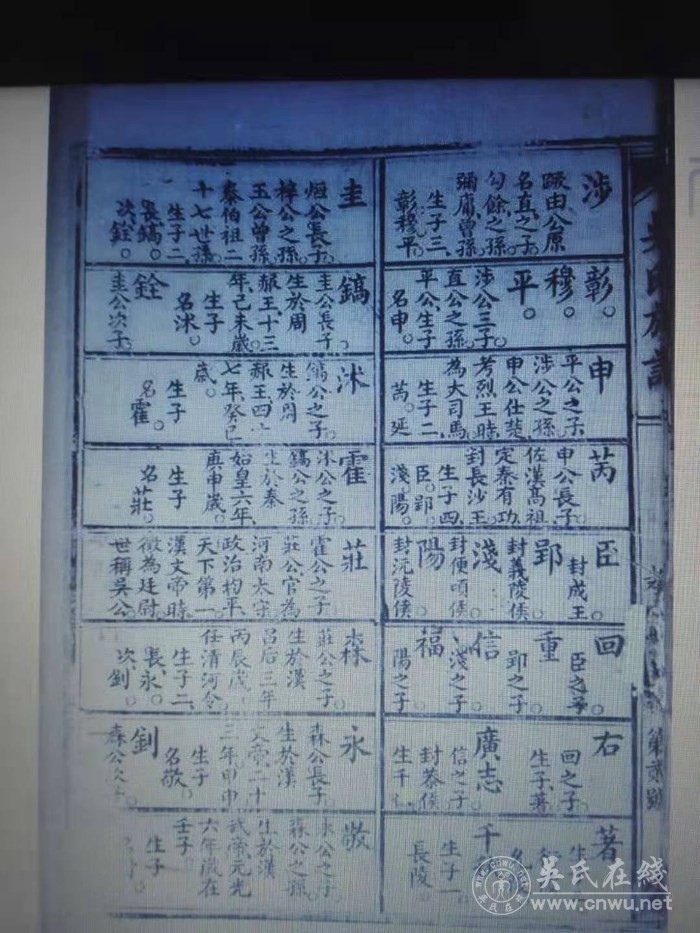 吳氏族譜
涉
蹶由公原
名直之子
句餘之孫
彌庸曾孫
生子三
彰穆平。
彰。
穆。
平。
涉公三子
直公之孫
平公生子
名申。
申
平公之子
涉公之孫
申公仕楚
考烈王時
為大司馬
生子二
芮。延
芮
申公長子
佐漢高祖
定秦有功
封長沙王
生子四
臣。郢
淺陽。
臣
封成王
郢
封義陵侯
淺
封便頃侯
陽
封沅陵侯
回
臣之子
重
郢之子
信
淺之子。
福
陽之子
右
回之子
生子著
廣志
信之子
封
生千
著
千
生子一。
長陵。
圭
烜公長子
梓公之孫
玉公曾孫
泰伯祖二
十七世孫
生子二
長鎬。
次銓。
鎬
圭公長子
生於周
赧王十三
年己未歲
生子
名沭。
銓
圭公次子。
沭
鎬公之子。
生於周
赧王四十
七年癸巳
歲。
生子
名霍。
霍
沭公之子
鎬公之孫
生於秦
始皇六年
庚申歲。
生子
名莊。
莊
霍公之子
莊公官為
河南太守
政治均平
天下第一
漢文帝時
徵為廷尉
世稱吳公
森
莊公之子
生於漢
呂后三年
丙辰歲
任清河令
生子二
長永。
次釗。
永
森公長子
生於漢
文帝二十
三年甲申
生子
名敬。
釗
森公次子
敬
永公之子
森公之孫
生於漢
武帝元光
六年歲在
壬子。
生子
吳氏在线
www.cnwu.net